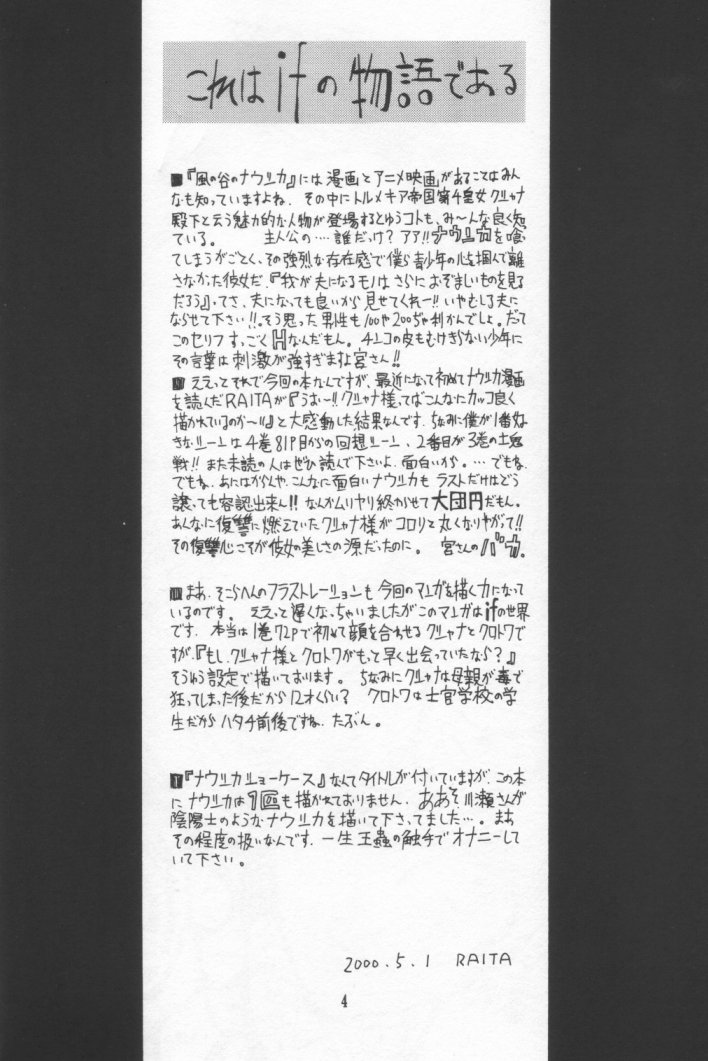 これは if の物語である
■『風の谷のナウシカ』には漫画とアニメ映画があることはみん
なも知っていますよね。その中にトルメキア帝国第4皇女クシャナ
殿下と云う魅力的な人物が登場するとゆうコトも、み〜んな良く知
ている。 主人公の…誰だっけ?アア!!ナウシカを喰
ってしまうがごとく、その強烈な存在感で僕ら青少年の心を掴んで離
さなかった彼女だ。『我が夫になるモノはさらにおぞましいものを見る
だろう』ってさ、夫になっても良いから見せてくれー!!いやむしろ夫に
ならせて下さい!!そう思った男性も100や200ぢゃ利かんでしょ。だって
■ ええっとそれで今回の本なんですが、最近になって初めてナウシカ漫画
を読んだRAITAが『うお〜!!クシャナ様ってばこんなにカッコ良く
描かれているのか〜!!』と大感動した結果なんです。ちなみに僕が1番好
きなシーンは4巻81P目からの回想シーン、2番目が3巻の土鬼
戦!! また未読の人はぜひ読んで下さいよ、面白いから。…でもね、
でもね、おにはがんや、こんなに面白いナウシカも ラストだけはどう
譲っても容認出来ん!! なんかムリヤリ終わらせて大団円だもん。
あんなに復讐に燃えていたクシャナ様がコロリと丸くなりやがって!!
その復讐心こそが彼女の美しさの源だったのに。 宮さんのバカ。
■まあ、そこらへんのフラストレーションも今回のマンガを描く力になって
いるのです。 ええっと遅くなっちゃいましたがこのマンガはifの世界
です、本当は1巻72Pで初めて顔を合わせるクシャナとクロトワで
すが、『もし、クシャナ様とクロトワがもっと早く出会っていたなら?』
そうゆう設定で描いております。ちなみにクシャナは母親が毒で
狂ってしまった後だから12才くらい? クロトワは士官学校の学
生だからハタチ前後ですね、たぶん。
■『ナウシカショーケース』なんてタイトルが付いていますが、この本
にナウシカは1回も描かれておりません、ああそ、川瀬さんが
陰陽士のようなナウシカを描いて下さってました…。まあ
2000.5.1 RAITA
4